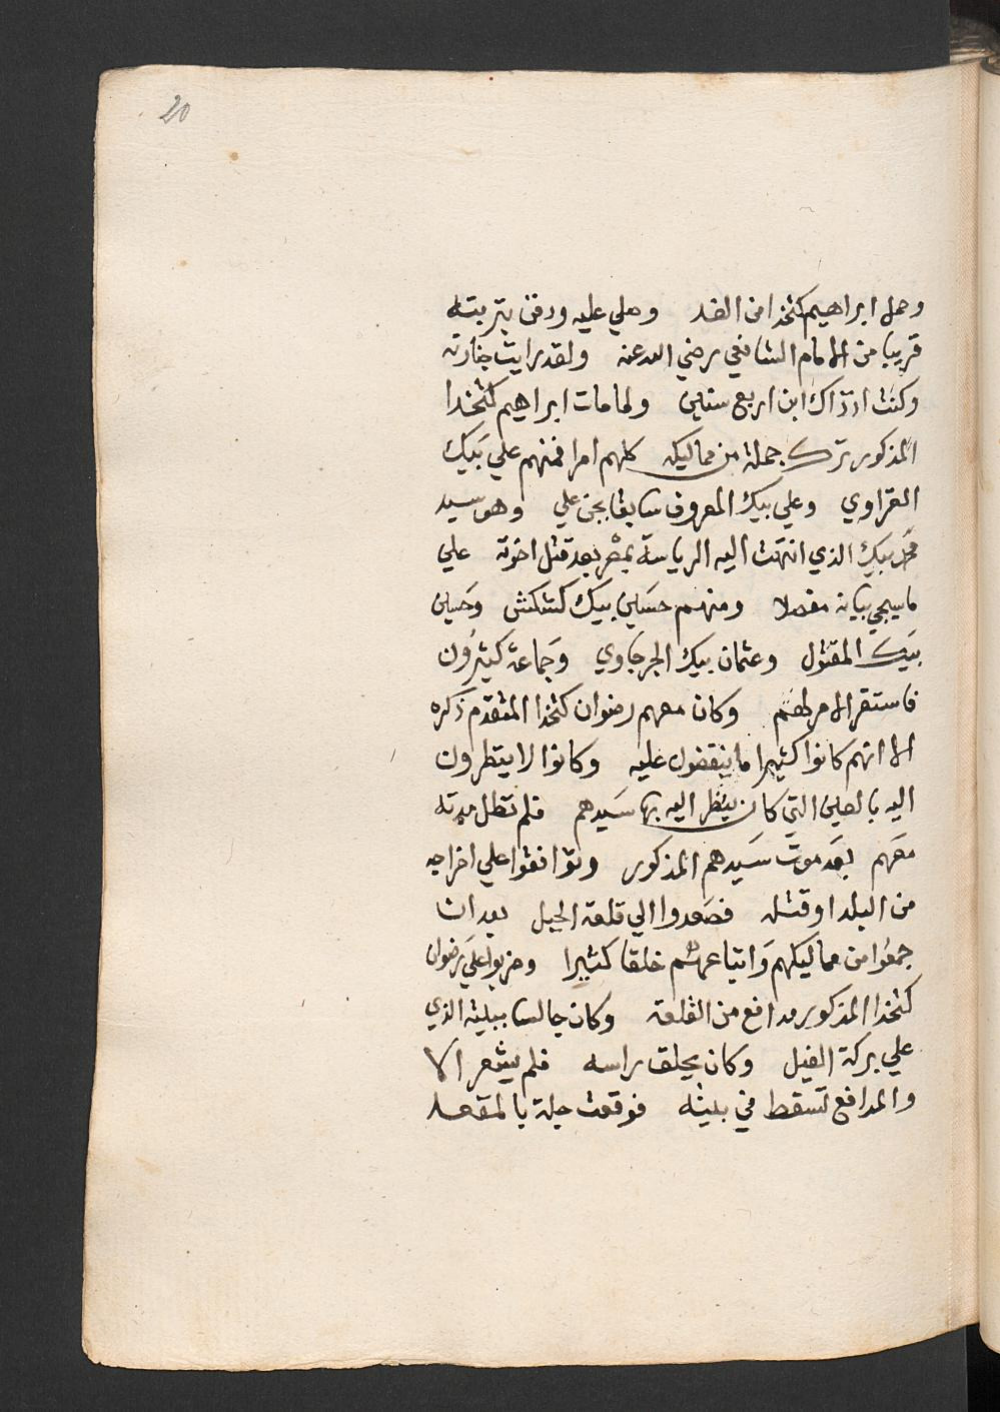 20
وحمل ابراهيم كتخدا من الغد وصلي عليه ودفن بتربته
قريبا من الامام الشافعي رضي الله عنه ولقد رايت جنازته
وكنت اذ ذاك ابن اربع سنين ولما مات ابراهيم كتخدا
المذكور ترك جملة من مماليكه كلهم امرا فمنهم علي بيك
الغزاوي وعلي بيك المعروف سابقا بجن علي وهو سيد
محمد بيك الذي انتهت اليه الرياسة بمصر بعد قتل اخوته علي
ما سيجي بيانه مفصلا ومنهم حسين بيك كشكش وحسين
بيك المقتول وعثمان بيك الجرجاوي وجماعة كثيرون
فاستقر الامر لهم وكان معهم رضوان كتخدا المتقدم ذكره
الا انهم كانوا كثيرا ما ينقضون عليه وكانوا لا ينظرون
اليه بالعين التي كان ينظر اليه بها سيدهم فلم تطل مدته
معهم بعد موت سيدهم المذكور وتوافقوا علي اخراجه
من البلد او قتله فصعدوا الي قلعة الجبل بعد ان
جمعوا من مماليكهم واتباعهم خلقا كثيرا وضربوا علي رضوان
كتخدا المذكور مدافع من القلعة وكان جالسا ببيته الذي
علي بركة الفيل وكان يحلق راسه فلم يشعر الا
والمدافع تسقط في بيته فوقعت جلة بالمقعد